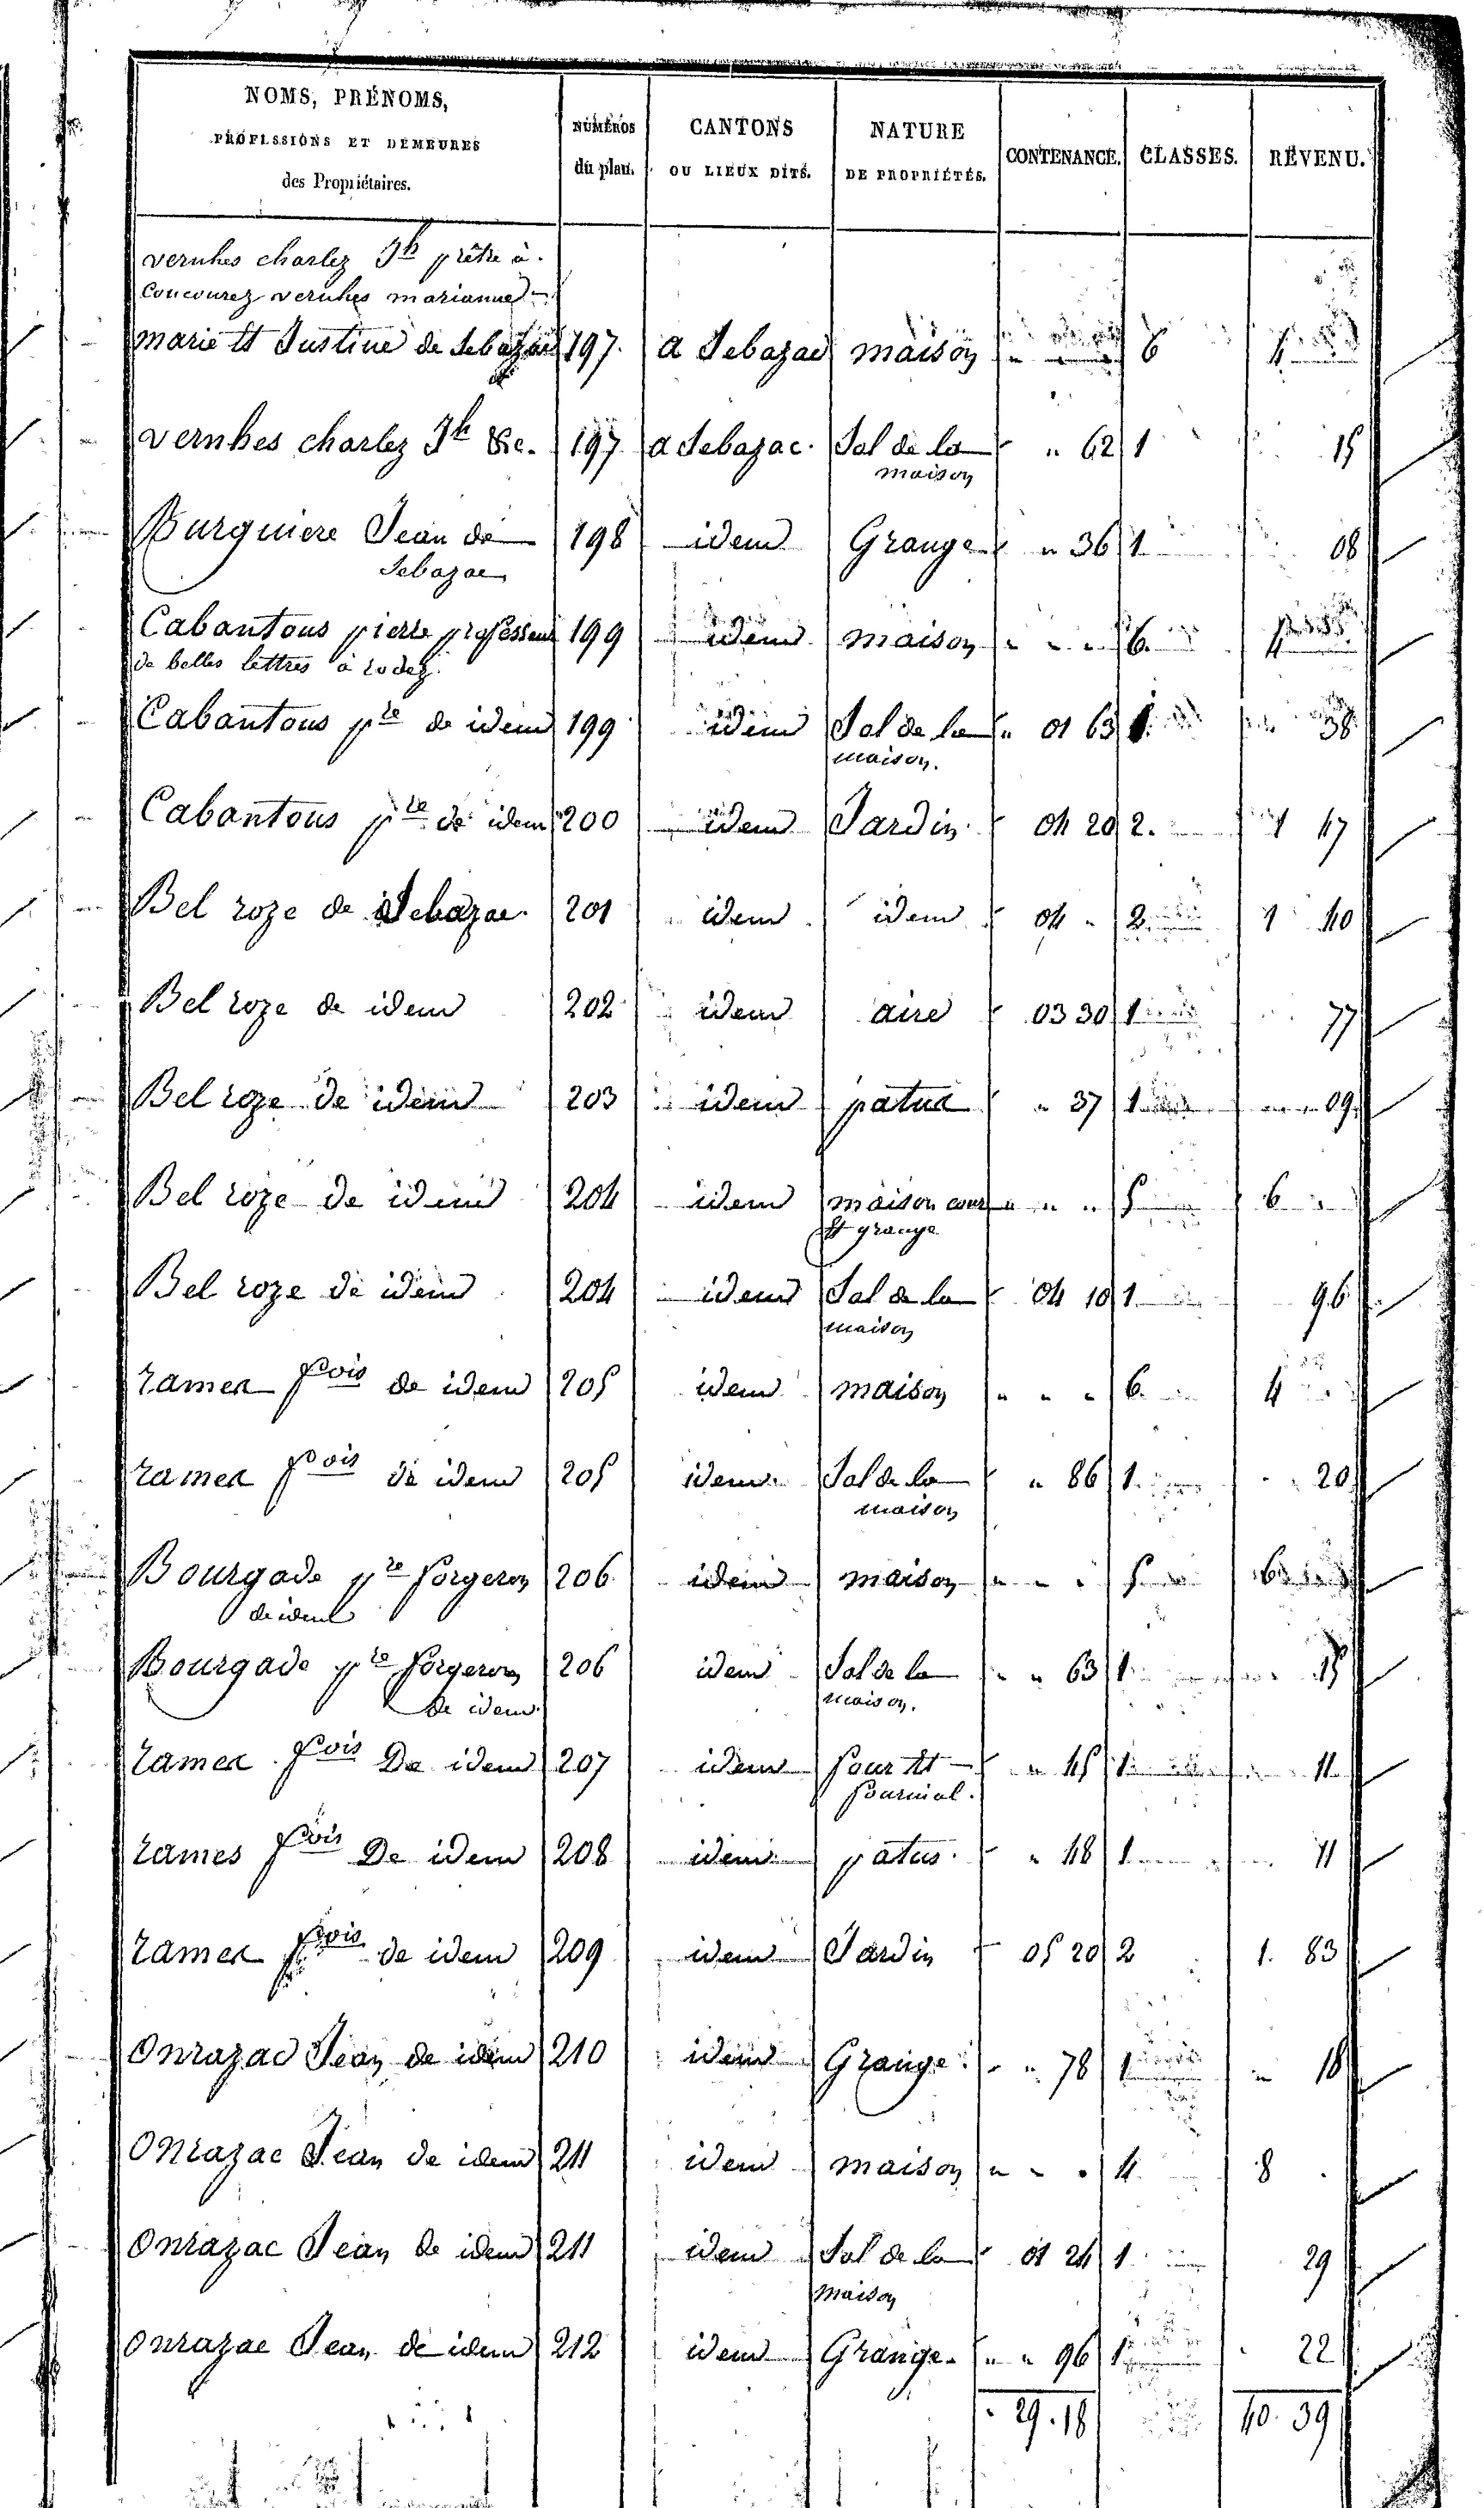 NOMS, PRÉNOMS, PROFESSIONS ET DEMEURES des Propriétaires. | NUMÉROS du plan. | CANTONS OU LIEUX DITS. | NATURE DE PROPRIÉTÉS. | CONTENANCE. | CLASSES. | REVENU.
vernhes charles Jh prêtre à
Concourez vernhes marianne
marie et Justine de Sebazac 197 a Sebazac maison " " 6 4
vernhes charles Jh &c. 197 a Sebazac. Sol de la " 62 1 15
maison
Burguiere Jean de 198 idem Grange " 36 1 08
Sebazac
Cabantous pierre professeur 199 idem maison " " " 6. 4
de belles lettres à rodez.
Cabantous pre de idem 199 idem Sol de la " 01 63 1. 38
maison.
Cabantous pre de idem 200 idem Jardin 04 20 2. 1 47
Bel roze de Sebazac. 201 idem idem 04 " 2 1 40
Bel roze de idem 202 idem aire 03 30 1 77
Bel roze de idem 203 idem patus " 37 1 09
Bel roze de idem 204 idem maison cour " " " 5 6 "
et grange
Bel roze de idem 204 idem Sol de la 04 10 1 96
maison
rames fois de idem 205 idem maison " " " 6. 4
rames fois de idem 205 idem. Sol de la " 86 1. 20
maison
Bourgade pre forgeron 206 idem maison " " " 5 6
de idem
Bourgade pre forgeron 206 idem Sol de la " " 63 1 15
de idem. maison.
rames fois De idem 207 idem four et " 45 1 11
fournial.
rames fois De idem 208 idem patus. " 48 1 11
rames fois de idem 209 idem Jardin 05 20 2 1. 83
Onrazac Jean de idem 210 idem Grange " " 78 1 " 18
Onrazac Jean de idem 211 idem maison " " " 4 8
Onrazac Jean de idem 211 idem Sol de la 01 24 1 29
maison
Onrazac Jean de idem 212 idem Grange. " " 96 1 22
29.18 40.39